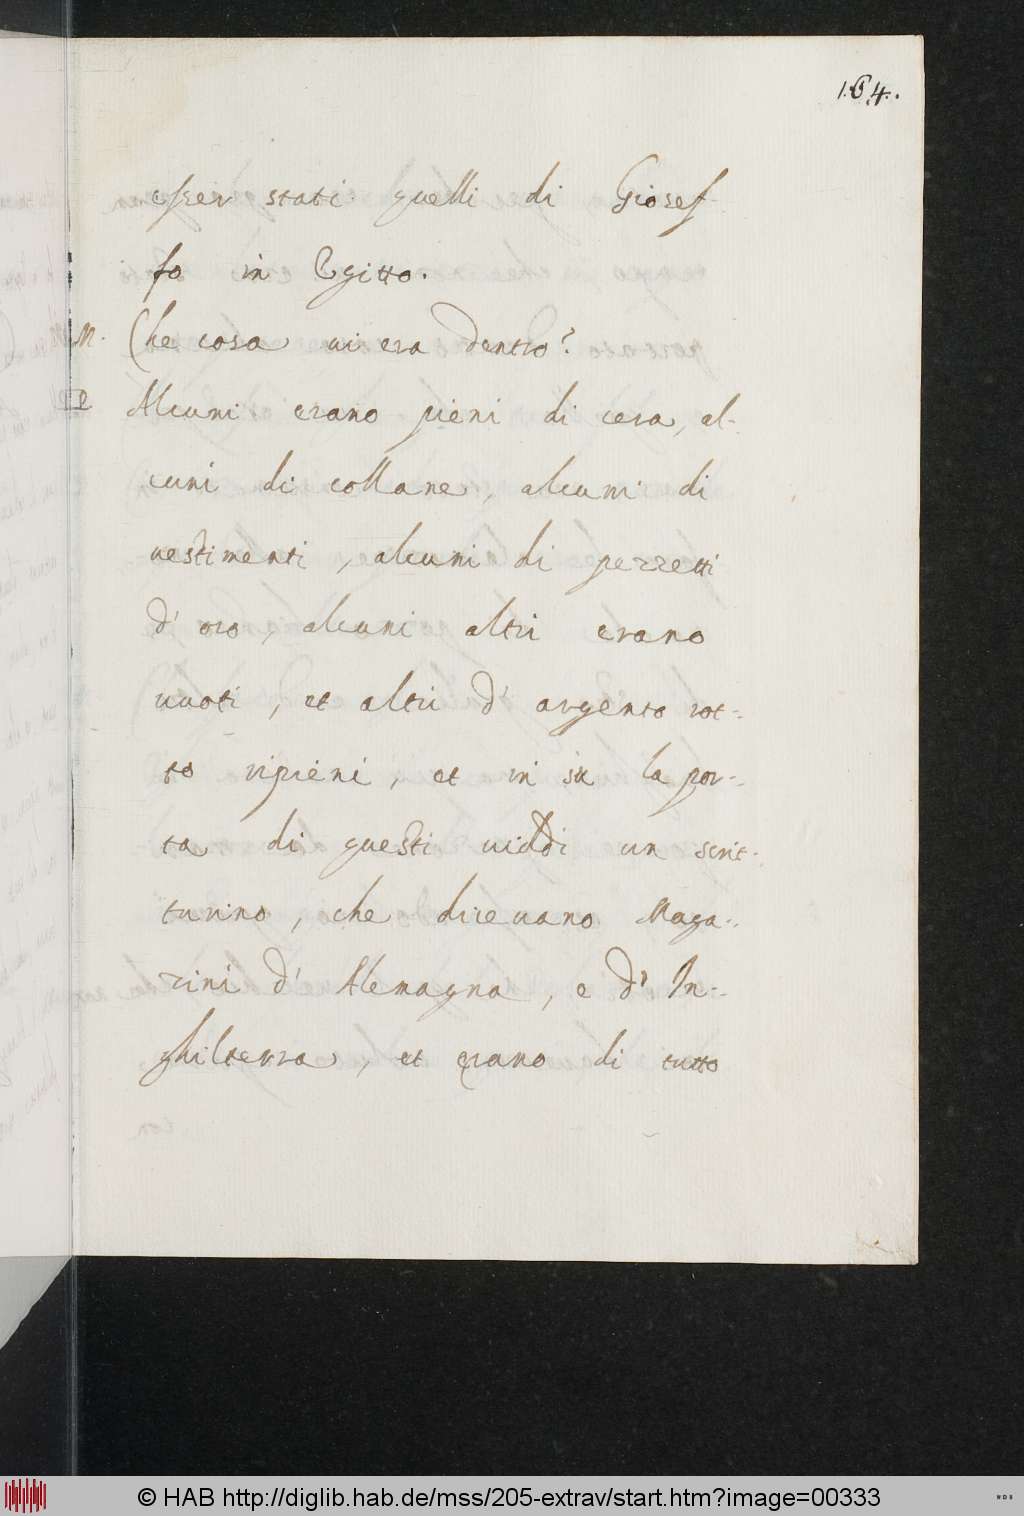 164.
esser stati quelli di Giosef-
fo in Egitto.
M. Che cosa ui era dentro?
e Alcuni erano pieni di cera, al-
cuni di collane, alcuni di
uestimenti, alcuni di pezzetti
d' oro, alcuni altri erano
uuoti, et altri d' argento rot-
to ripieni, et in su la por-
ta di questi uiddi un scrit-
turino, che diceuano Maga-
zini d' Alemagna, e d' In-
ghilterra, et erano di tutto
© HAB http://diglib.hab.de/mss/205-extrav/start.htm?image=00333